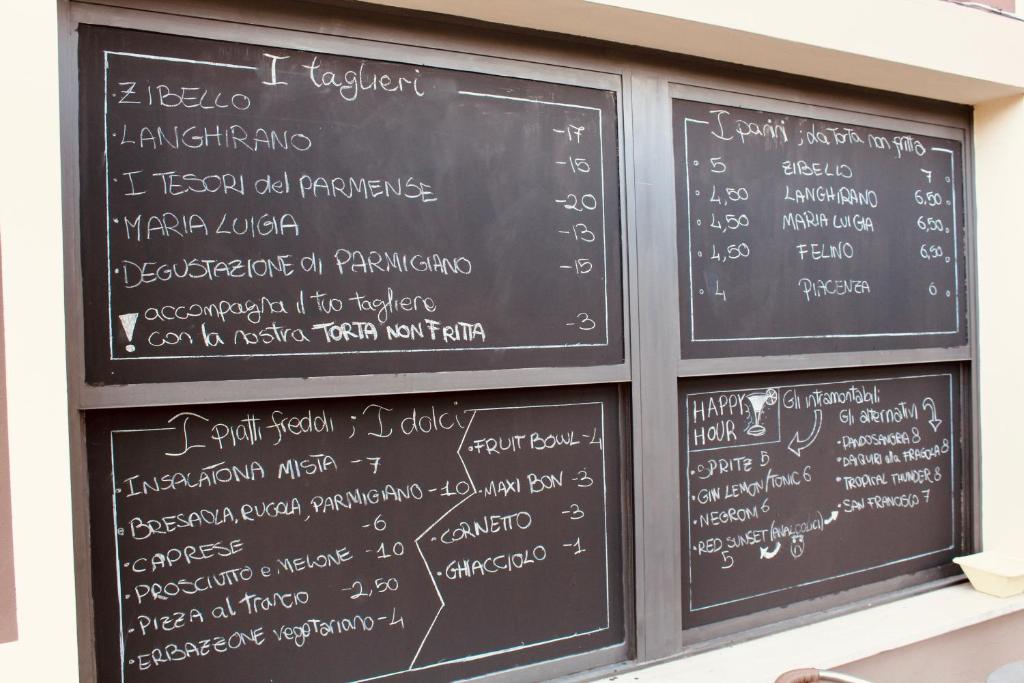 I taglieri
·ZIBELLO -17
·LANGHIRANO -15
·I TESORI del PARMENSE -20
·MARIA LUIGIA -13
·DEGUSTAZIONE di PARMIGIANO -15
! accompagna il tuo tagliere
con la nostra TORTA NON FRITTA -3
I panini ; la torta non fritta
5 ZIBELLO 7
4,50 LANGHIRANO 6,50
4,50 MARIA LUIGIA 6,50
4,50 FELINO 6,50
4 PIACENZA 6
I piatti freddi ; I dolci
·INSALATONA MISTA -7
·BRESAOLA, RUCOLA, PARMIGIANO -10
·CAPRESE -6
·PROSCIUTTO e MELONE -10
·PIZZA al trancio -2,50
·ERBAZZONE vegetariano -4
·FRUIT BOWL -4
·MAXI BON -3
·CORNETTO -3
·GHIACCIOLO -1
HAPPY
HOUR
Gli intramontabili
·SPRITZ 5
·GIN LEMON/TONIC 6
·NEGRONI 6
·RED SUNSET (ANALCOLICI)
5
Gli alternativi
·PANDOSANGRIA 8
·DAIQURI alla FRAGOLA 8
·TROPICAL THUNDER 8
·SAN FRANCISCO 7